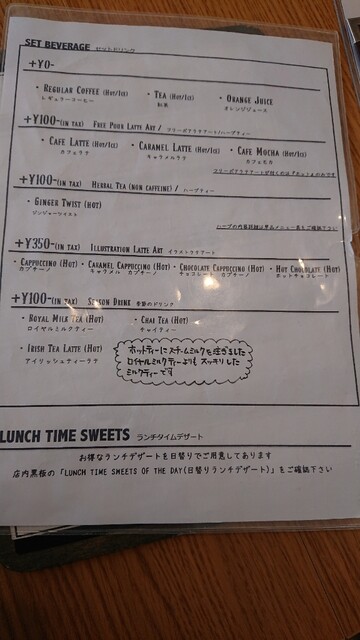 SET BEVERAGE セットドリンク
+¥0-
・ REGULAR COFFEE (HOT/ICE) ・ TEA (HOT/ICE) ・ ORANGE JUICE
レギュラーコーヒー 紅茶 オレンジジュース
+¥100-(IN TAX) FREE POUR LATTE ART / フリーポアラテアート/ハーブティー
・ CAFE LATTE (HOT/ICE) ・ CARAMEL LATTE (HOT/ICE) ・ CAFE MOCHA (HOT/ICE)
カフェラテ キャラメルラテ カフェモカ
フリーポアラテアートが付くのは「ホット」のみです
+¥100-(IN TAX) HERBAL TEA (NON CAFFEINE) / ハーブティー
・ GINGER TWIST (HOT)
ジンジャーツイスト
ハーブの内容詳細は単品メニュー表をご確認下さい
+¥350-(IN TAX) ILLUSTRATION LATTE ART イラストラテアート
・ CAPPUCCINO (HOT) ・ CARAMEL CAPPUCCINO (HOT) ・ CHOCOLATE CAPPUCCINO (HOT) ・ HOT CHOCOLATE (HOT)
カプチーノ キャラメル カプチーノ チョコレート カプチーノ ホットチョコレート
+¥100-(IN TAX) SEASON DRINK 季節のドリンク
・ ROYAL MILK TEA (HOT) ・ CHAI TEA (HOT)
ロイヤルミルクティー チャイティー
・ IRISH TEA LATTE (HOT)
アイリッシュティーラテ
ホットティーにスチームミルクを注ぎました
ロイヤルミルクティーよりも スッキリした
ミルクティーです
LUNCH TIME SWEETS ランチタイムデザート
お得なランチデザートを日替りでご用意してあります
店内黒板の「LUNCH TIME SWEETS OF THE DAY(日替りランチデザート)」をご確認下さい